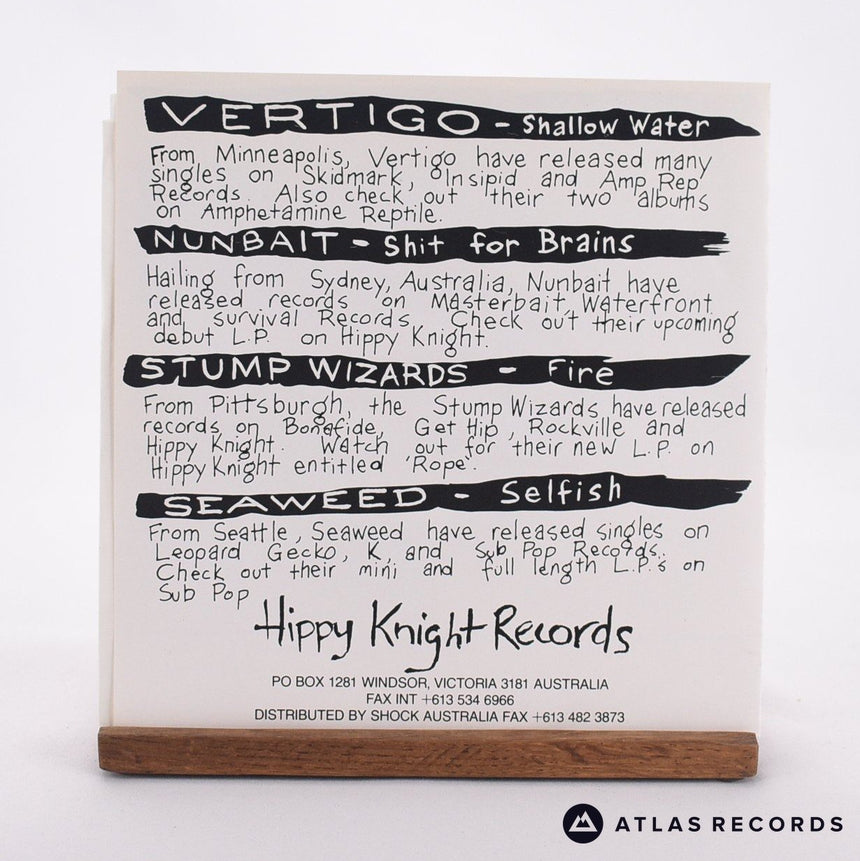 VERTIGO - Shallow Water
From Minneapolis, Vertigo have released many
singles on Skidmark, Insipid and Amp Rep
Records. Also check out their two albums
on Amphetamine Reptile.
NUNBAIT - Shit for Brains
Hailing from Sydney, Australia, Nunbait have
released records on Masterbait, Waterfront
and survival Records. Check out their upcoming
debut L.P. on Hippy Knight.
STUMP WIZARDS - Fire
From Pittsburgh, the Stump Wizards have released
records on Bonafide, Get Hip, Rockville and
Hippy Knight. Watch out for their new L.P. on
Hippy Knight entitled 'Rope'.
SEAWEED - Selfish
From Seattle, Seaweed have released singles on
Leopard Gecko, K, and Sub Pop Records.
Check out their mini and full length L.P.'s on
Sub Pop
Hippy Knight Records
PO BOX 1281 WINDSOR, VICTORIA 3181 AUSTRALIA
FAX INT +613 534 6966
DISTRIBUTED BY SHOCK AUSTRALIA FAX +613 482 3873
ATLAS RECORDS